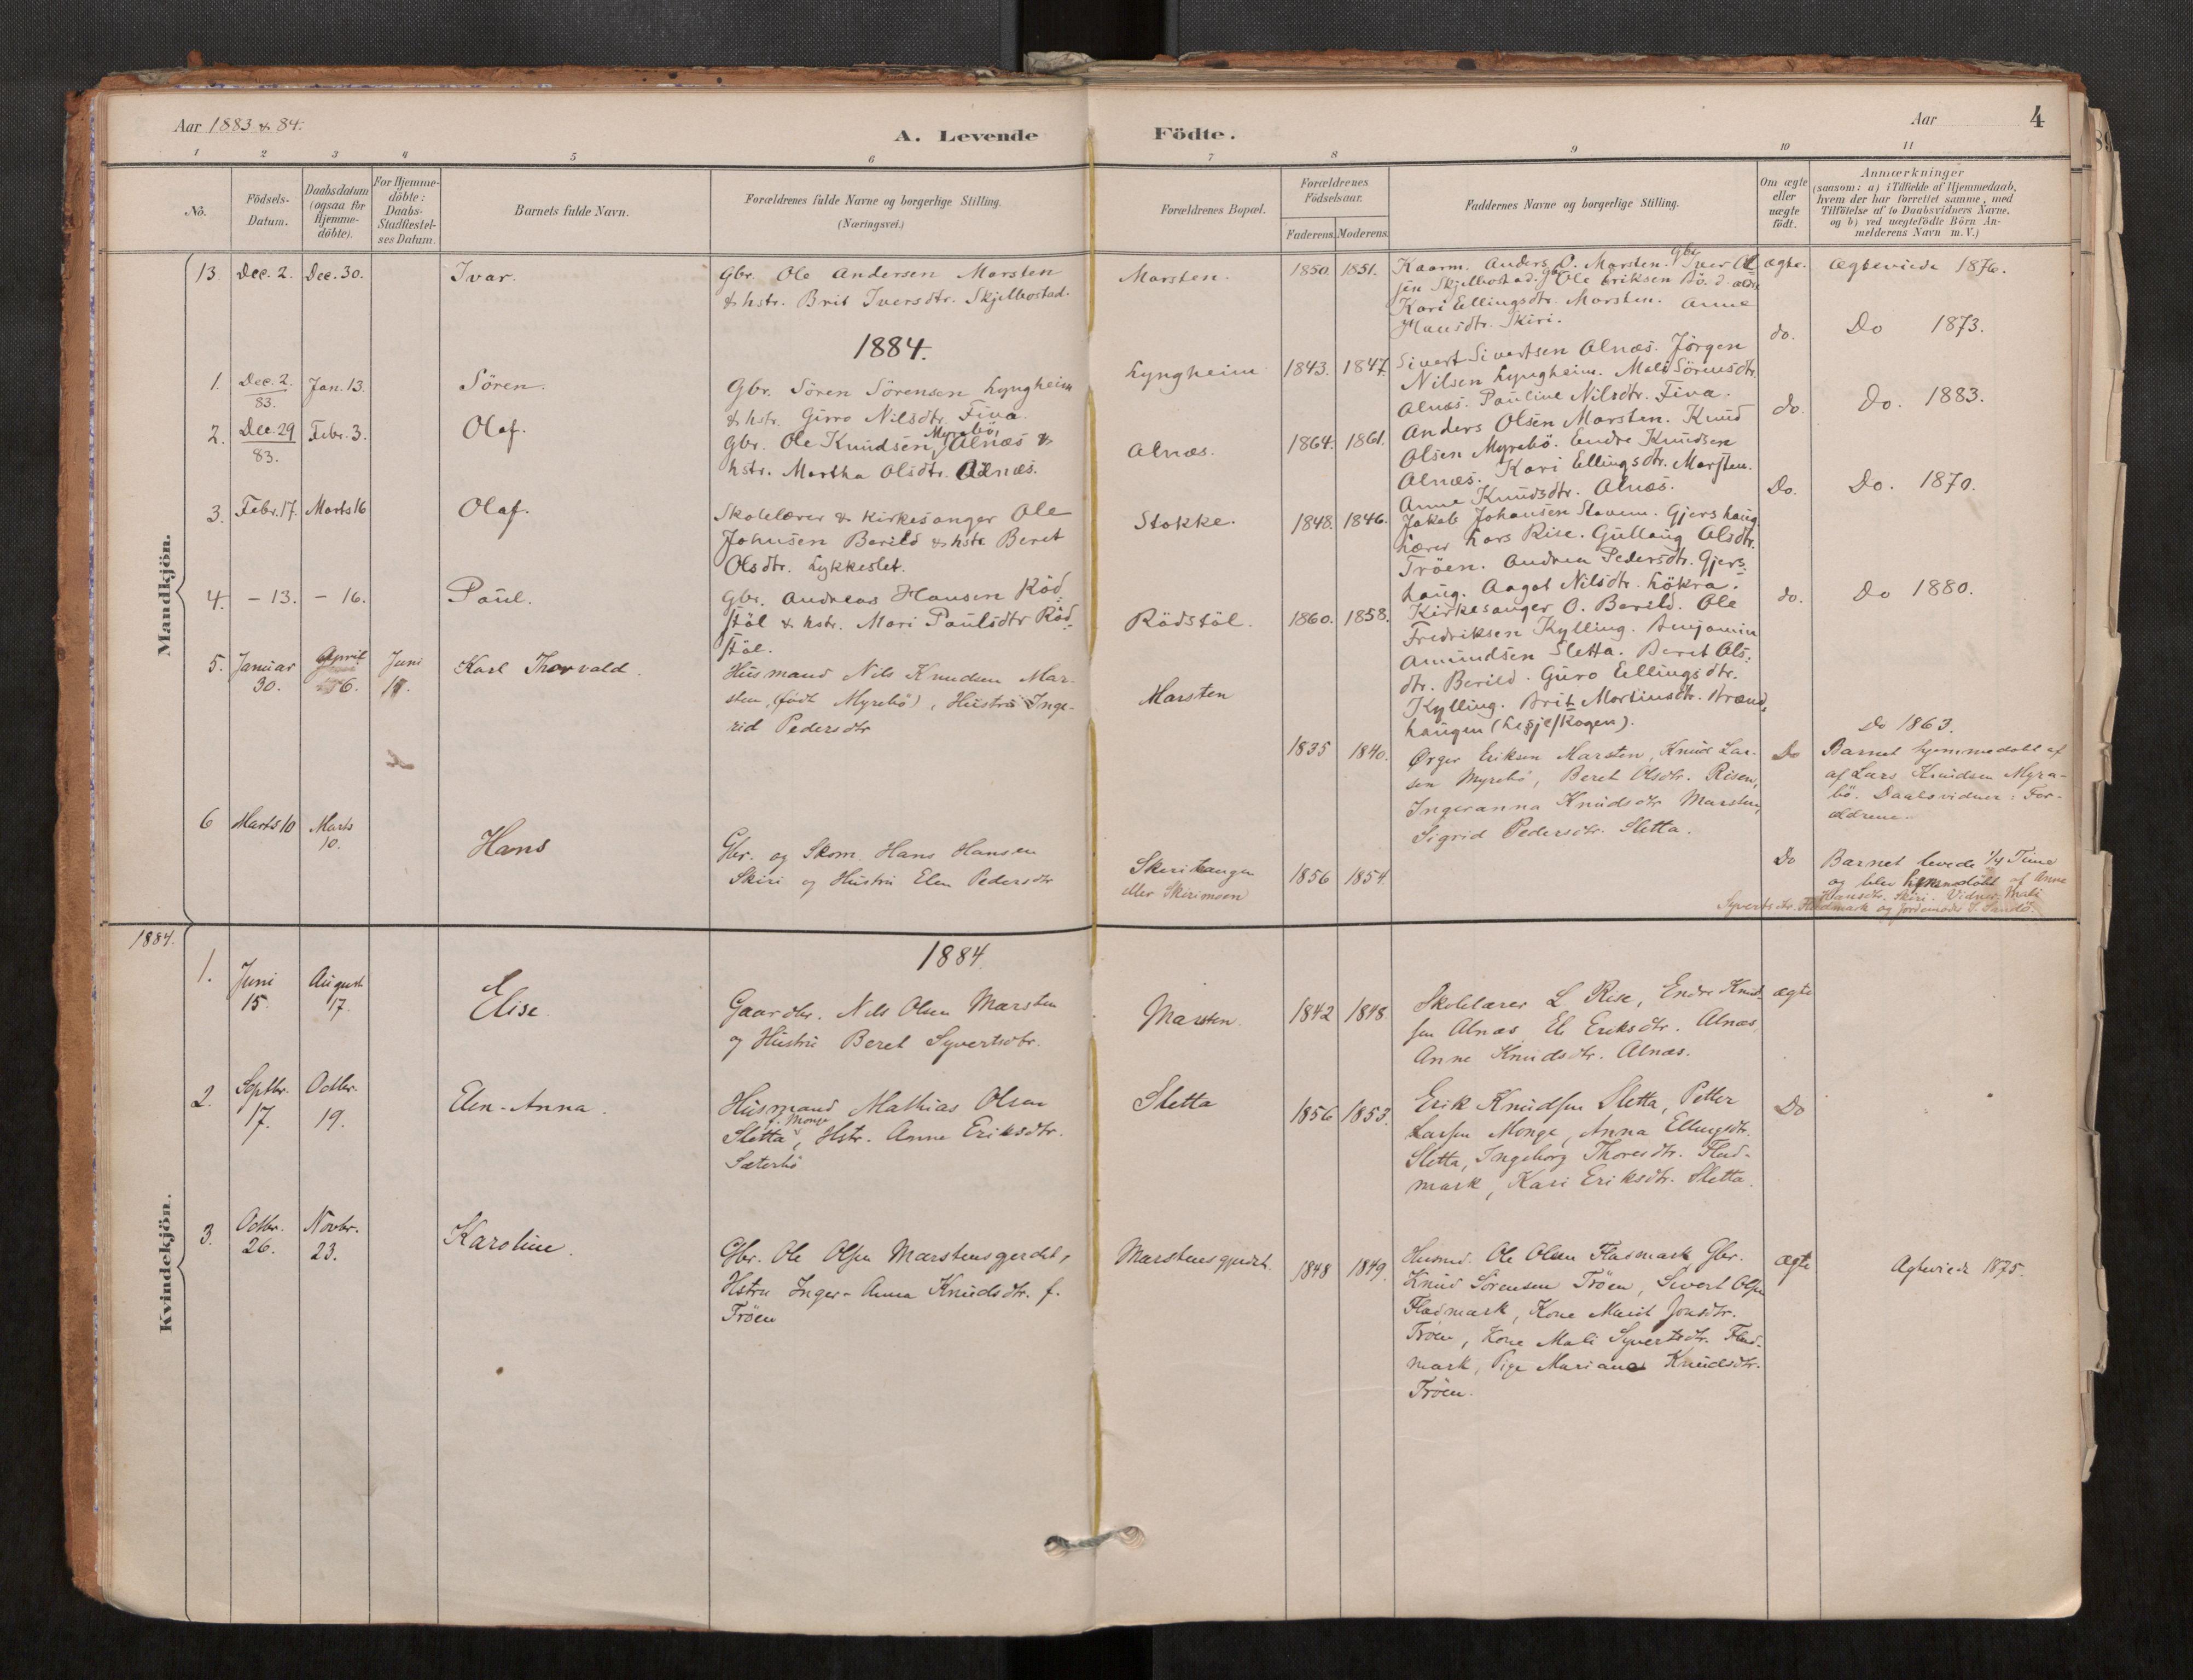 Aar 1883 & 84.
A. Levende Födte.
Aar
4
1 2 3 4 5 6 7 8 9 10 11
No.
Födsels-
Datum.
Daabsdatum
(ogsaa for
Hjemme-
döbte).
For Hjemme-
döbte:
Daabs-
Stadfæstel-
ses Datum.
Barnets fulde Navn.
Forældrenes fulde Navne og borgerlige Stilling.
(Næringsvei.)
Forældrenes Bopæl.
Forældrenes
Födselsaar.
Faderens. Moderens.
Faddernes Navne og borgerlige Stilling.
Om ægte
eller
uægte
födt.
Anmærkninger
(saasom: a) i Tilfælde af Hjemmedaab,
hvem der har forrettet samme, med
Tilföielse af to Daabsvidners Navne,
og b) ved uægtefödte Börn An-
melderens Navn m. V.)
Mandkjön.
13. Dec. 2. Dec. 30.
Ivar.
Gbr. Ole Andersen Marsten
& hstr. Brit Iversdtr. Skjelbostad.
Marsten.
1850. 1851.
Kaarm. Anders O. Marsten. Gbr. Iver Ol
sen Skjelbostad. Gbr. Ole Eriksen Bö. d. æ
Kari Ellingsdtr. Marsten. Anne
Hansdtr. Skiri.
ægte.
Ægteviede 1876.
1884.
1. Dec. 2. 83. Jan. 13.
Sören.
Gbr. Sören Sörensen Lyngheim
& hstr. Guro Nilsdtr. Fiva.
Lyngheim
1843. 1847.
Sivert Sivertsen Alnæs. Jörgen
Nilsen Lyngheim. Mali Sörensdtr.
Alnæs. Pauline Nilsdtr. Fiva.
do.
Do 1873.
2. Dec. 29 83. Febr. 3.
Olaf.
Gbr. Ole Knudsen Myrebö, Alnæs &
hstr. Martha Olsdtr. Alnæs.
Alnæs.
1864. 1861.
Anders Olsen Marsten. Knud
Olsen Myrebö. Endre Knudsen
Alnæs. Kari Ellingsdtr. Marsten.
Anne Knudsdtr. Alnæs.
do.
Do. 1883.
3. Febr. 17. Marts 16
Olaf.
Skolelærer & Kirkesanger Ole
Johnsen Berild & hstr. Beret
Olsdtr. Lykkeslet.
Stokke.
1848. 1846.
Jakob Johansen Stavem. Gjershaug
Lærer Lars Rise. Gullaug Olsdtr.
Tröen. Andrea Pedersdtr. Gjers-
haug. Aagot Nilsdtr. Lökra.
Do.
Do. 1870.
4. – 13. – 16.
Paul.
Gbr. Andreas Hansen Röd
stöl & hstr. Mari Paulsdtr Röd
stöl.
Rödstöl.
1860. 1858.
Kirkesanger O. Berild. Ole
Fredriksen Kylling. Benjamin
Amundsen Sletta. Beret Ols:
dtr. Berild. Guro Ellingsdtr.
Kylling. Brit Martinusdtr. Brænd,
haugen (Lesjeskogen).
do.
Do 1880.
5. Januar 30. April 6. Juni 1
Karl Thorvald.
Husmand Nils Knudsen Mar-
sten, (födt Myrebö), Hustru Inge-
rid Pedersdtr
Marsten
1835 1840.
Örger Eriksen Marsten, Knud Lar-
sen Myrebö, Beret Olsdtr. Risen,
Ingeranna Knudsdtr Marsten,
Sigrid Pedersdtr. Sletta.
Do
Do 1863.
Barnet hjemmedøbt af
af Lars Knudsen Myra-
bö. Daabsvidner: For-
ældrene.
6 Marts 10 Marts 10.
Hans
Gbr. og Skom. Hans Hansen
Skiri og Hustru Elen Pedersdtr
Skirihaugen
eller Skirimoen
1856 1854.
Do
Barnet levede 1/4 Time
og blev hjemmedøbt af Anne
Hansdtr. Skiri. Vidner Mali
Syvertsdtr. Fladmark og Jordemoder S. Sandö.
1884.
1884
Kvindekjön.
1. Juni 15. August 17.
Elise.
Gaardbr. Nils Olsen Marsten
og Hustru Beret Syvertsdtr.
Marsten.
1842 1848.
Skolelærer L Rise, Endre Knud-
sen Alnæs, Eli Eriksdtr. Alnæs,
Anne Knudsdtr. Alnæs.
ægte
2. Septbr. 17. Octbr. 19.
Elen-Anna.
Husmand Mathias Olsen
Sletta f. Monge, Hstr. Anne Eriksdtr.
Sæterbö
Sletta
1856 1853.
Erik Knudsen Sletta, Petter
Larsen Monge, Anna Ellingsdtr.
Sletta, Ingeborg Thoresdtr. Flad-
mark, Kari Eriksdtr. Sletta.
Do
3. Octbr. 26. Novbr. 23.
Karoline.
Gbr. Ole Olsen Marstensgjerdet,
Hstru Inger-Anna Knudsdtr. f.
Tröen
Marstensgjerdet.
1848 1849.
Husmd. Ole Olsen Fladmark Gbr.
Knud Sörensen Tröen, Sivert Olsen
Fladmark, Kone Marit Jonsdtr.
Tröen, Kone Mali Syvertsdtr. Flad-
mark, Pige Mariane Knudsdtr.
Tröen.
ægte
Ægteviede 1875.